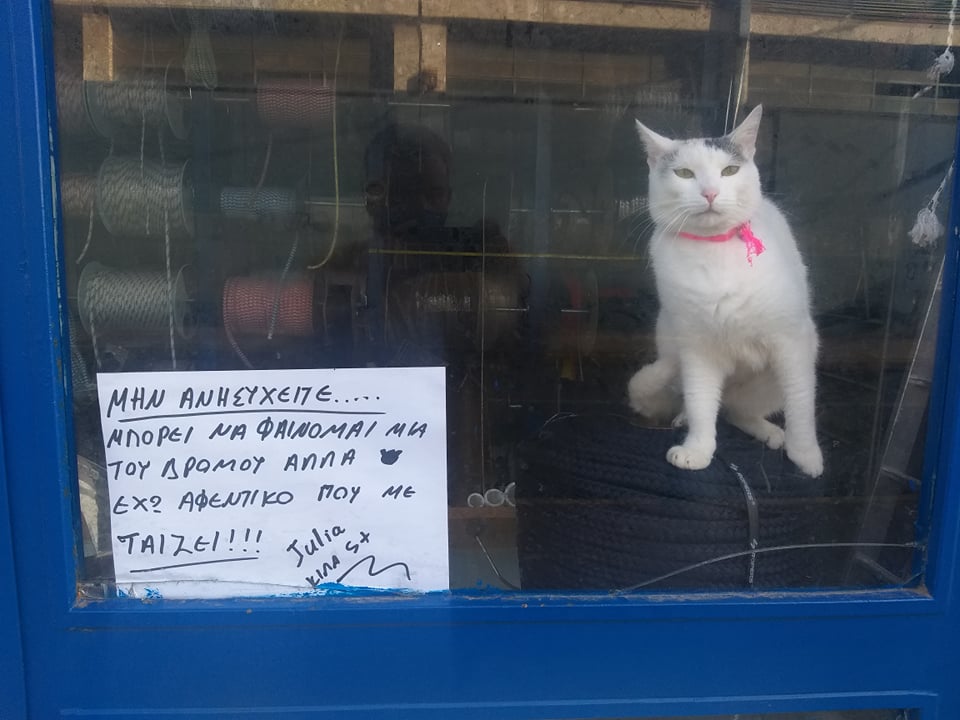 ΜΗΝ ΑΝΗΣΥΧΕΙΤΕ.....
ΜΠΟΡΕΙ ΝΑ ΦΑΙΝΟΜΑΙ ΜΙΑ
ΤΟΥ ΔΡΟΜΟΥ ΑΛΛΑ
ΕΧΩ ΑΦΕΝΤΙΚΟ ΠΟΥ ΜΕ
ΤΑΙΖΕΙ!!!
Julia